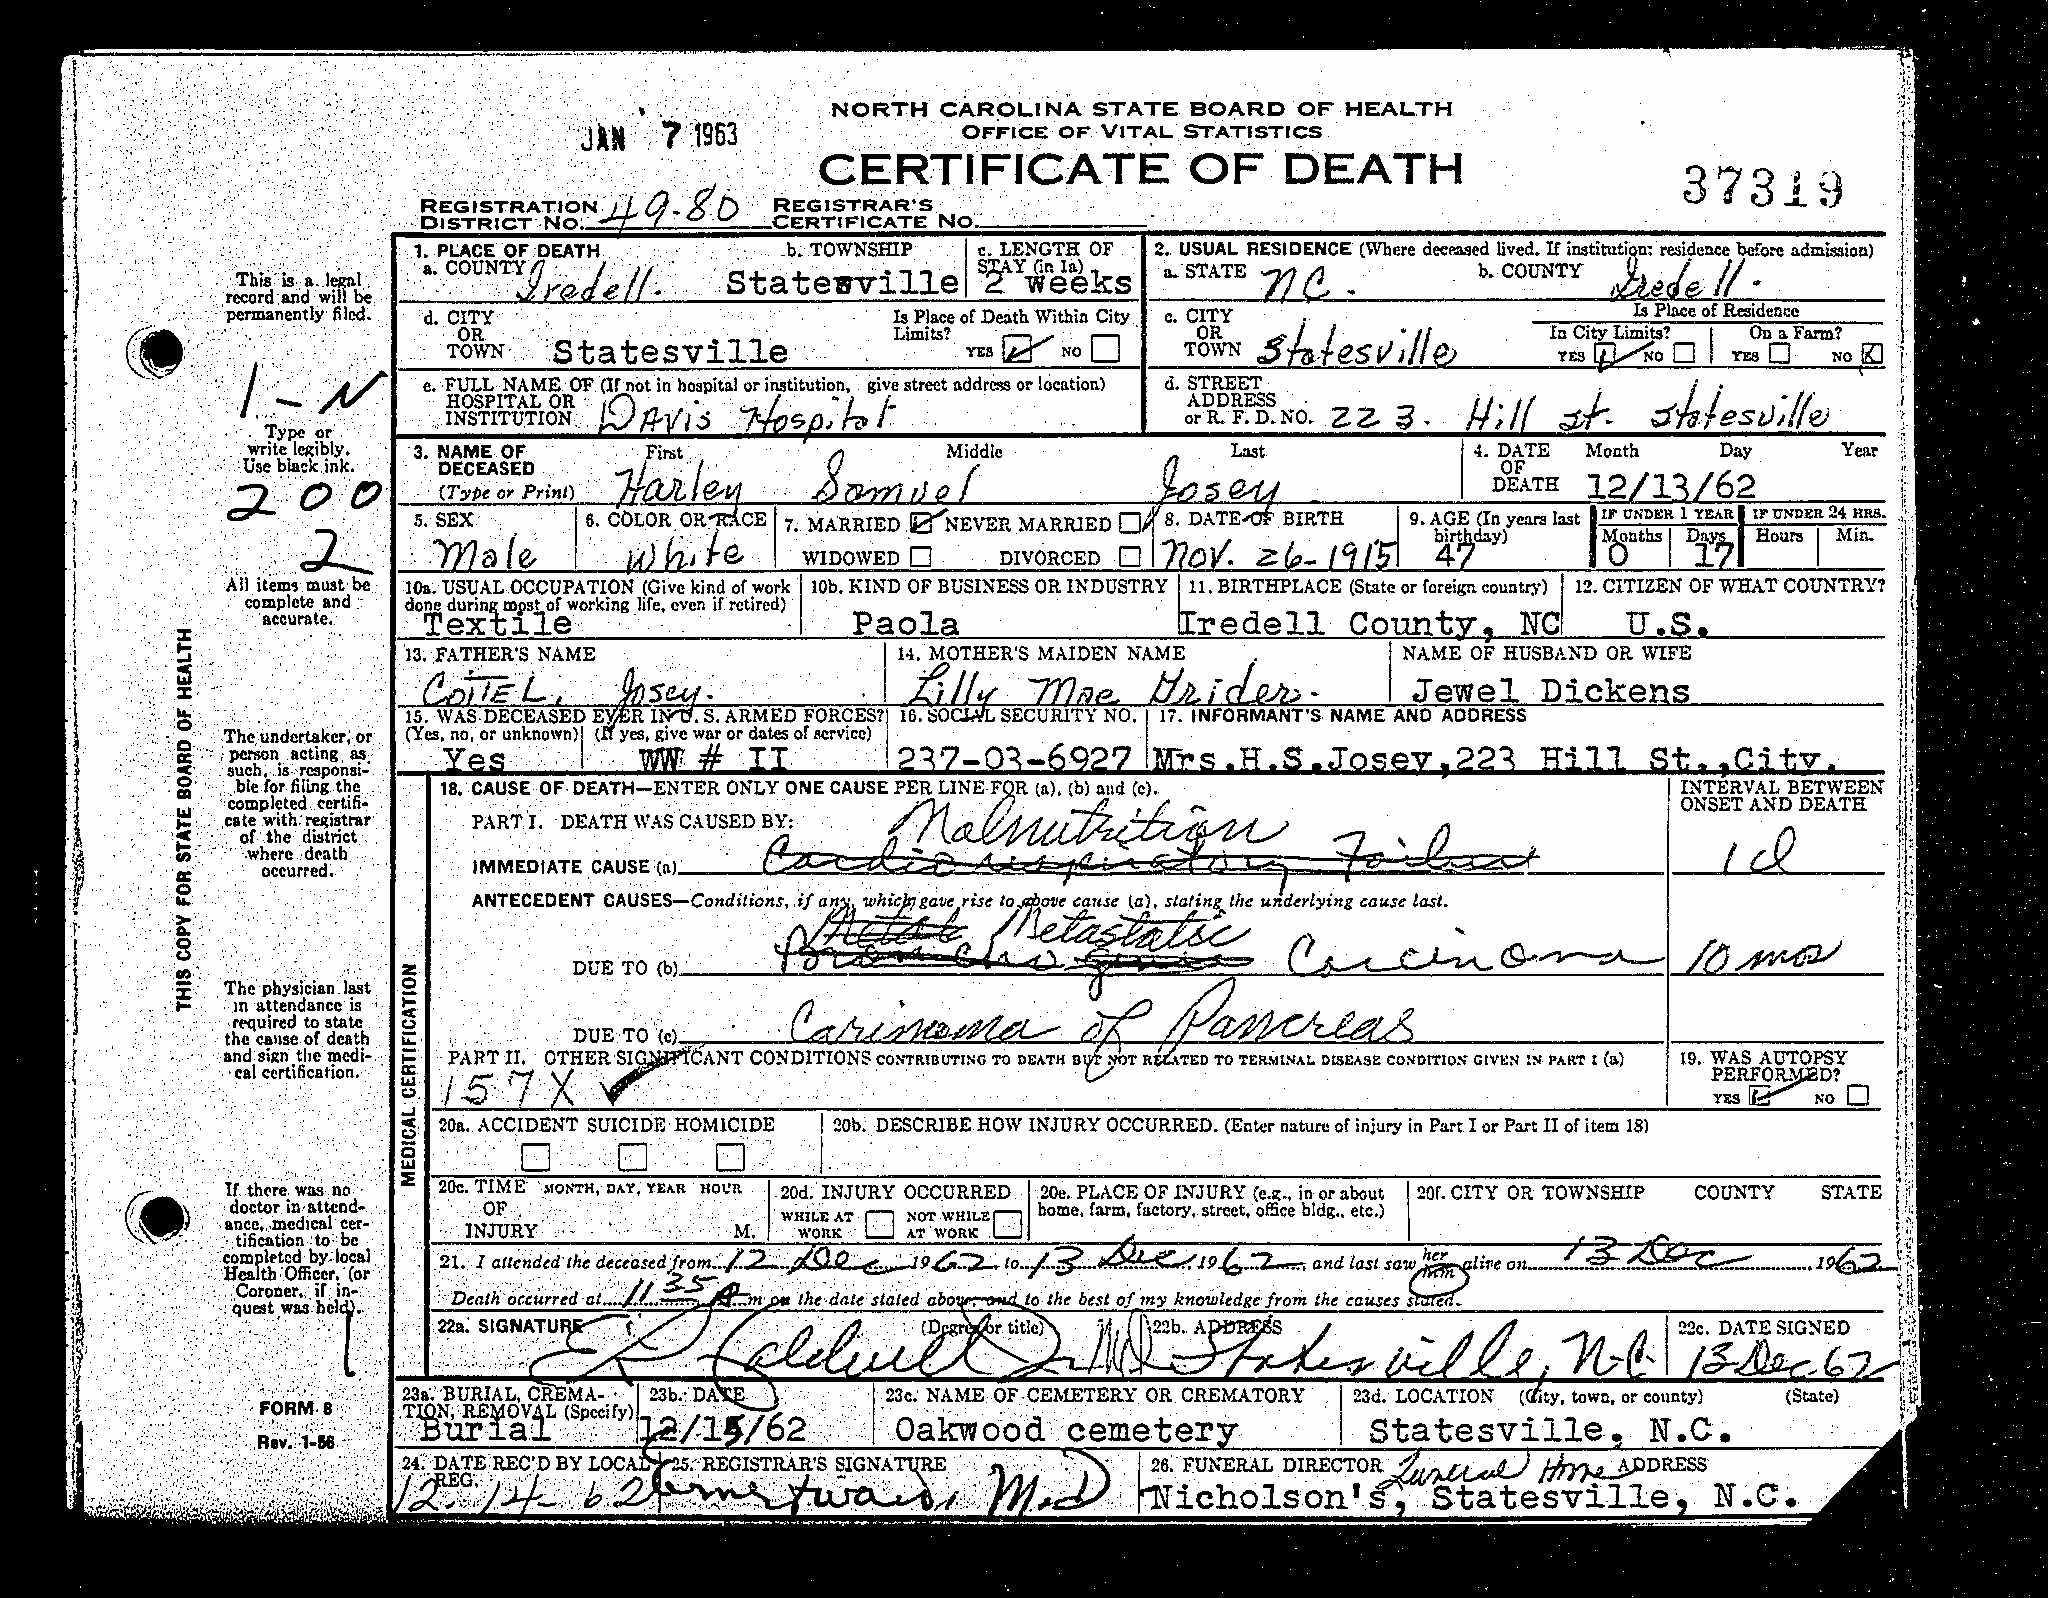 JAN 7 1963
NORTH CAROLINA STATE BOARD OF HEALTH
OFFICE OF VITAL STATISTICS
CERTIFICATE OF DEATH
37319
REGISTRATION DISTRICT NO. 49-80 REGISTRAR'S CERTIFICATE NO.
This is a legal record and will be permanently filed.
1-N
Type or write legibly. Use black ink.
200
2
All items must be complete and accurate.
THIS COPY FOR STATE BOARD OF HEALTH
The undertaker, or person acting as such, is responsible for filing the completed certificate with registrar of the district where death occurred.
The physician last in attendance is required to state the cause of death and sign the medical certification.
If there was no doctor in attendance, medical certification to be completed by local Health Officer, (or Coroner, if inquest was held).
1
FORM 8
Rev. 1-56
1. PLACE OF DEATH
a. COUNTY Iredell. b. TOWNSHIP Statesville c. LENGTH OF STAY (in 1a) 2 weeks
2. USUAL RESIDENCE (Where deceased lived. If institution: residence before admission)
a. STATE NC. b. COUNTY Iredell.
d. CITY OR TOWN Statesville Is Place of Death Within City Limits? YES NO
c. CITY OR TOWN Statesville Is Place of Residence In City Limits? YES NO On a Farm? YES NO X
e. FULL NAME OF (If not in hospital or institution, give street address or location) HOSPITAL OR INSTITUTION Davis Hospital
d. STREET ADDRESS or R. F. D. NO. 223. Hill st. Statesville
3. NAME OF DECEASED (Type or Print) First Harley Middle Samuel Last Josey
4. DATE OF DEATH Month Day Year 12/13/62
5. SEX Male 6. COLOR OR RACE White 7. MARRIED NEVER MARRIED WIDOWED DIVORCED
8. DATE OF BIRTH Nov. 26-1915 9. AGE (In years last birthday) 47 IF UNDER 1 YEAR Months 0 Days 17 IF UNDER 24 HRS. Hours Min.
10a. USUAL OCCUPATION (Give kind of work done during most of working life, even if retired) Textile
10b. KIND OF BUSINESS OR INDUSTRY Paola
11. BIRTHPLACE (State or foreign country) Iredell County, NC
12. CITIZEN OF WHAT COUNTRY? U.S.
13. FATHER'S NAME Coite L. Josey.
14. MOTHER'S MAIDEN NAME Lilly Mae Grider.
NAME OF HUSBAND OR WIFE Jewel Dickens
15. WAS DECEASED EVER IN U. S. ARMED FORCES? (Yes, no, or unknown) (If yes, give war or dates of service) Yes WW # II
16. SOCIAL SECURITY NO. 237-03-6927
17. INFORMANT'S NAME AND ADDRESS Mrs.H.S.Josey,223 Hill St.,City.
MEDICAL CERTIFICATION
18. CAUSE OF DEATH—ENTER ONLY ONE CAUSE PER LINE FOR (a), (b) and (c).
INTERVAL BETWEEN ONSET AND DEATH
PART I. DEATH WAS CAUSED BY: Malnutrition
IMMEDIATE CAUSE (a) Cardio respiratory Failure 1 d
ANTECEDENT CAUSES—Conditions, if any, which gave rise to above cause (a), stating the underlying cause last.
Metastatic
DUE TO (b) Broncho genic Carcinoma 10 mos
DUE TO (c) Carinoma of Pancreas
PART II. OTHER SIGNIFICANT CONDITIONS CONTRIBUTING TO DEATH BUT NOT RELATED TO TERMINAL DISEASE CONDITION GIVEN IN PART I (a)
157X
19. WAS AUTOPSY PERFORMED? YES NO
20a. ACCIDENT SUICIDE HOMICIDE
20b. DESCRIBE HOW INJURY OCCURRED. (Enter nature of injury in Part I or Part II of item 18)
20c. TIME OF INJURY MONTH, DAY, YEAR HOUR M.
20d. INJURY OCCURRED WHILE AT WORK NOT WHILE AT WORK
20e. PLACE OF INJURY (e.g., in or about home, farm, factory, street, office bldg., etc.)
20f. CITY OR TOWNSHIP COUNTY STATE
21. I attended the deceased from 12 Dec 1962 to 13 Dec 1962, and last saw her him alive on 13 Dec 1962
Death occurred at 11 35 A m on the date stated above, and to the best of my knowledge from the causes stated.
22a. SIGNATURE (Degree or title) Caldwell Jr MD
22b. ADDRESS Statesville, N.C.
22c. DATE SIGNED 13 Dec 62
23a. BURIAL, CREMATION, REMOVAL (Specify) Burial
23b. DATE 12/15/62
23c. NAME OF CEMETERY OR CREMATORY Oakwood cemetery
23d. LOCATION (City, town, or county) (State) Statesville, N.C.
24. DATE REC'D BY LOCAL REG. 12-14-62
25. REGISTRAR'S SIGNATURE Ward, M.D
26. FUNERAL DIRECTOR Funeral Home ADDRESS
Nicholson's, Statesville, N.C.